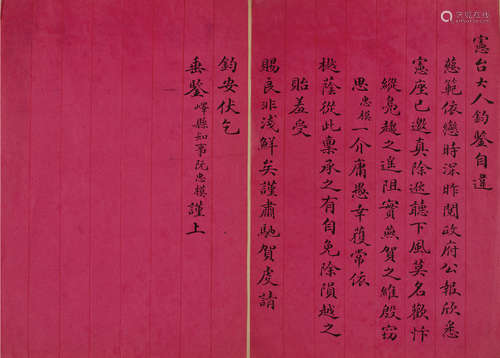 憲台大人鈞鑒自違
慈範依戀時深昨閱政府公報欣悉
憲座已邀真除逖聽下風莫名歡忭
縱鳧趨之遑阻實燕賀之維殷竊
思忠模一介庸愚幸獲常依
樾蔭從此稟承之有自免除隕越之
貽羞受
賜良非淺鮮矣謹肅馳賀虔請
鈞安伏乞
垂鑒嶧縣知事阮忠模謹上